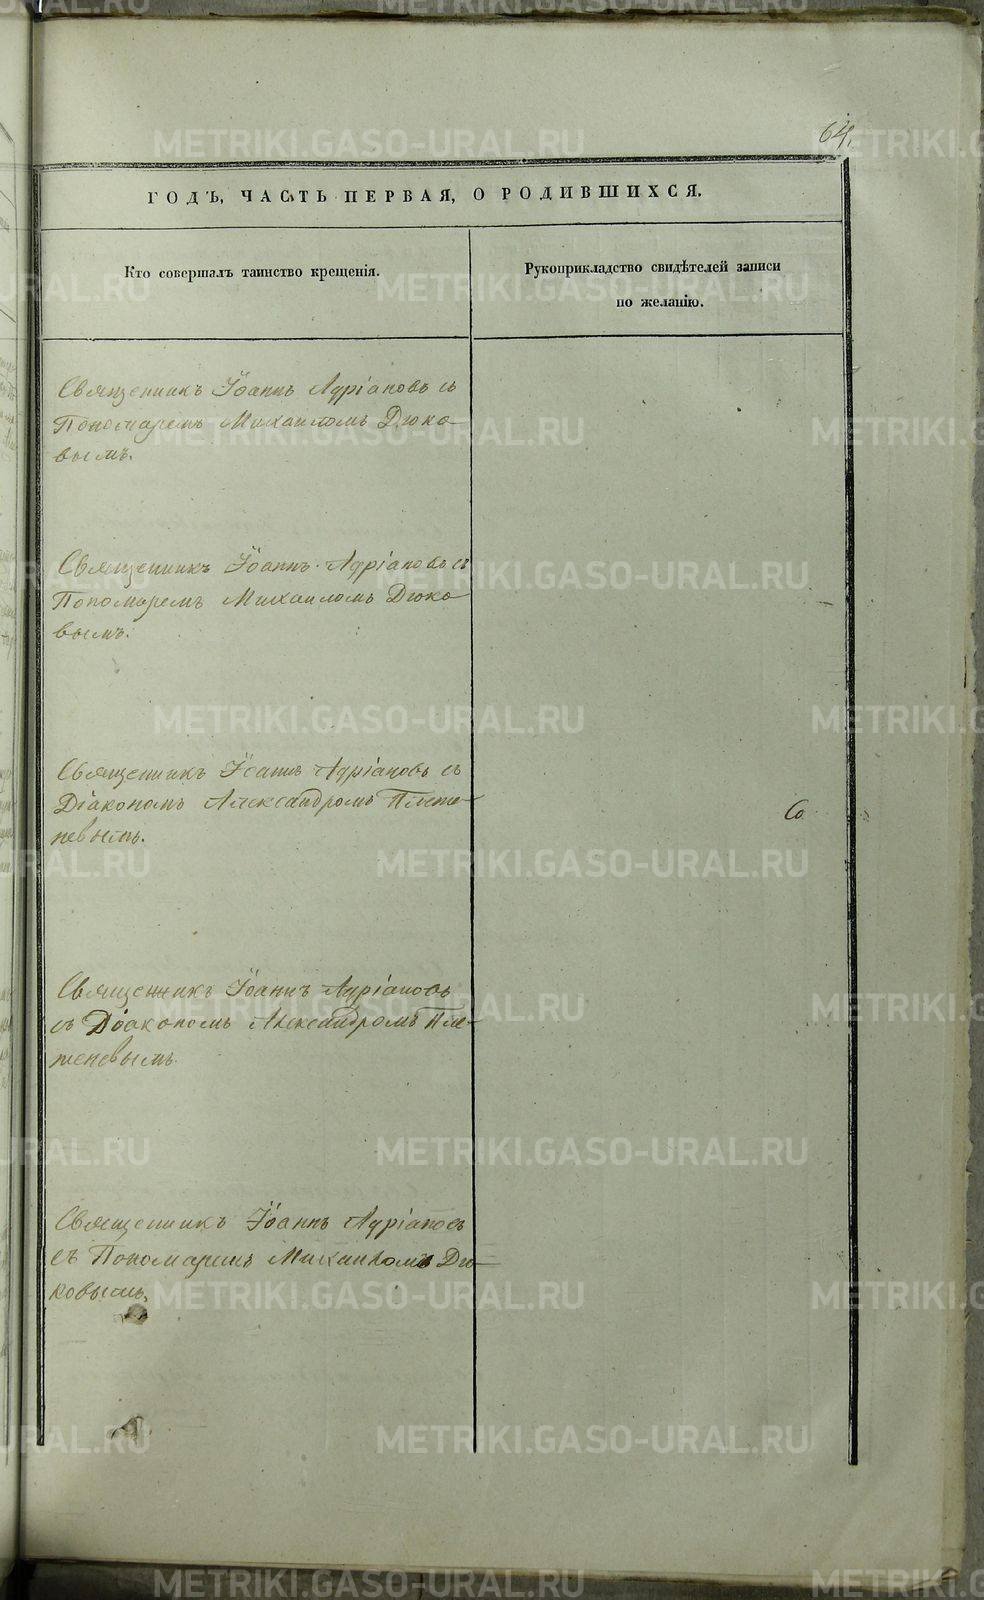 64.
ГОДЪ, ЧАСТЬ ПЕРВАЯ, О РОДИВШИХСЯ.
Кто совершалъ таинство крещенія.
Рукоприкладство свидѣтелей записи
по желанію.
Священникъ Іоаннъ Адріановъ съ
Пономаремъ Михаиломъ Дюко-
вымъ.
Священникъ Іоаннъ Адріановъ съ
Пономаремъ Михаиломъ Дюко-
вымъ.
Священникъ Іоаннъ Адріановъ съ
Діакономъ Александромъ Плете-
невымъ.
Священникъ Іоаннъ Адріановъ
съ Діакономъ Александромъ Пле-
теневымъ.
Священникъ Іоаннъ Адріановъ
съ Пономаремъ Михаиломъ Дю-
ковымъ.
METRIKI.GASO-URAL.RU